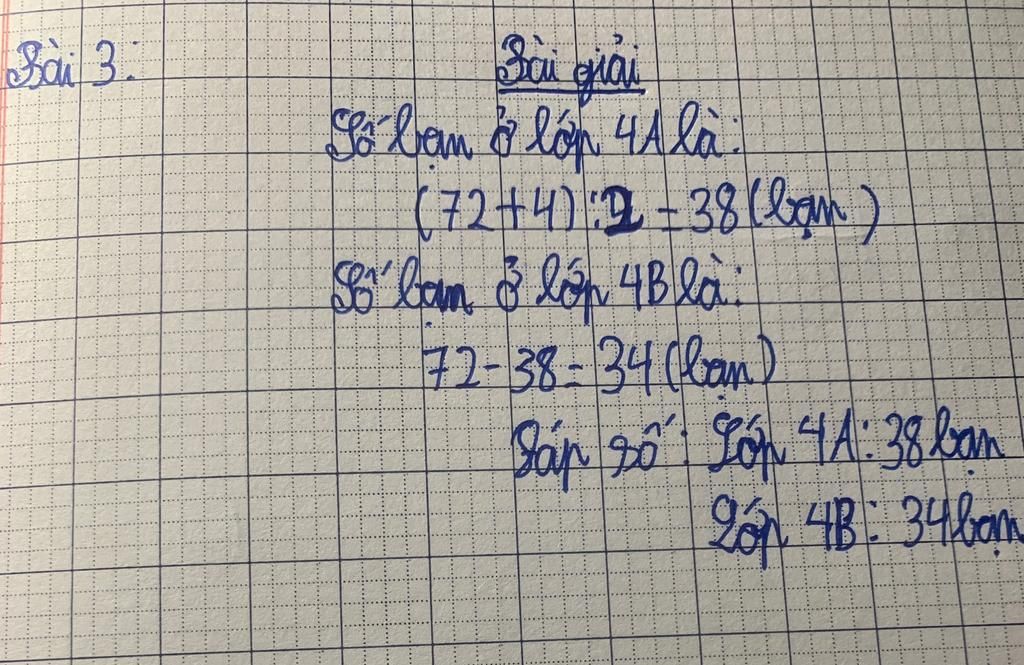 Bài 3:
Bài giải
Số bạn ở lớp 4A là:
(72+4):2=38(bạn)
Số bạn ở lớp 4B là:
72-38=34(bạn)
Đáp số: Lớp 4A:38bạn
Lớp 4B: 34bạn